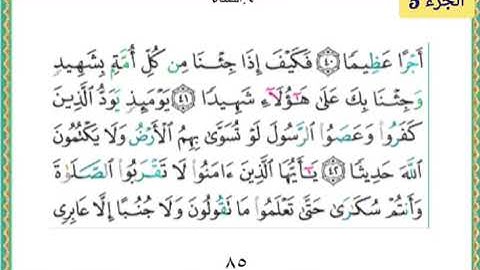 الجزء 5
أَجْرًا عَظِيمًا ٤٠ فَكَيْفَ إِذَا جِئْنَا مِن كُلِّ أُمَّةٍۭ بِشَهِيدٍ
وَجِئْنَا بِكَ عَلَىٰ هَٰٓؤُلَآءِ شَهِيدًا ٤١ يَوْمَئِذٍ يَوَدُّ الَّذِينَ
كَفَرُوا۟ وَعَصَوُا۟ الرَّسُولَ لَوْ تُسَوَّىٰ بِهِمُ الْأَرْضُ وَلَا يَكْتُمُونَ
اللَّهَ حَدِيثًا ٤٢ يَٰٓأَيُّهَا الَّذِينَ ءَامَنُوا۟ لَا تَقْرَبُوا۟ الصَّلَوٰةَ
وَأَنتُمْ سُكَٰرَىٰ حَتَّىٰ تَعْلَمُوا۟ مَا تَقُولُونَ وَلَا جُنُبًا إِلَّا عَابِرِى
٨٥